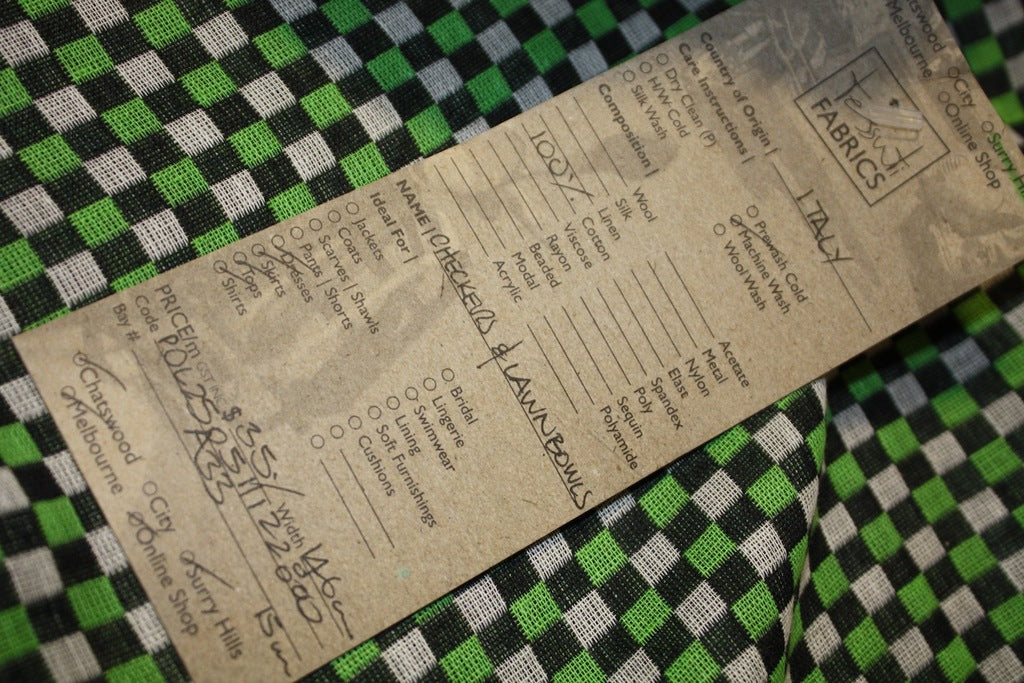 Chatswood
Melbourne
City
Online Shop
Surry
Tessuti
FABRICS
Country of Origin | ITALY
Care Instructions |
Dry Clean (P)
H/W Cold
Silk Wash
Prewash Cold
Machine Wash
Wool Wash
Composition |
Wool
Silk
Linen
100% Cotton
Viscose
Rayon
Beaded
Modal
Acrylic
Acetate
Metal
Nylon
Elast
Spandex
Poly
Sequin
Polyamide
NAME | CHECKERS & LAWNBOWLS
Ideal For |
Jackets
Coats
Scarves | Shawls
Pants | Shorts
Dresses
Skirts
Tops
Shirts
Bridal
Lingerie
Swimwear
Lining
Soft Furnishings
Cushions
PRICE/m GST INC $ 35/ Width 146cm
Code
Buy # A233 15m
Chatswood
Melbourne
City
Online Shop
Surry Hills